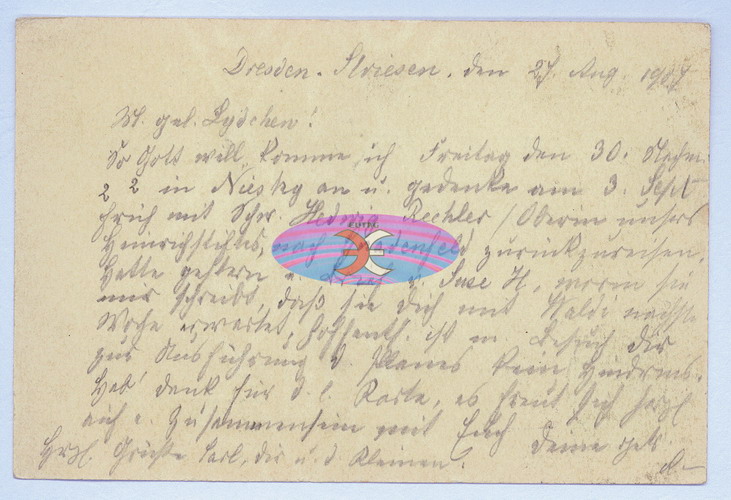 Dresden-Striesen, den 27. Aug. 1907
M. gel. Lydchen!
So Gott will, komme ich Freitag den 30. Nachm.
2 in Niesky an u. gedenke am 3. Sept
früh mit Schw. Hedwig Rechler (Oberin unsers
Heinrichstiftes, nach Gnadenfeld zurückzureisen.
Hatte gestern v. Suse H., worin sie
mir schreibt, daß sie Dich mit Waldi nächste
Woche erwartet, hoffentl. ist m. Besuch Dir
zur Ausführung d. Planes kein Hindernis.
Hab' Dank für d. l. Karte, es freut sich herzl
auf e. Zusammensein mit Euch Deine
Herzl. Grüße Carl, Dir u. d Kleinen!